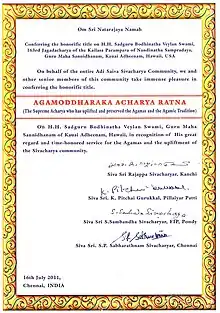 Om Sri Natarajaya Namah
Conferring the honorific title on H.H. Sadguru Bodhinatha Veylan Swami,
163rd Jagadacharya of the Kailasa Parampara of Nandinatha Sampradaya,
Guru Maha Sannidhanam, Kauai Adheenam, Hawaii, USA
On behalf of the entire Adi Saiva Sivacharya Community, we and
other senior members of this community take immense pleasure in
conferring the honorific title.
AGAMODDHARAKA ACHARYA RATNA
(The Supreme Acharya who has uplifted and preserved the Agamas and the Agamic Tradition)
On H.H. Sadguru Bodhinatha Veylan Swami, Guru Maha
Sannidhanam of Kauai Adheenam, Hawaii, in recognition of His great
regard and time-honored service for the Agamas and the upliftment of
the Sivacharya community.
Siva Sri Rajappa Sivacharyar, Kanchi
K. Pitchai
Siva Sri. K. Pitchai Gurukkal, Pillaiyar Patti
Siva Sri S.Sambandha Sivacharyar, FIP, Pondy
Siva Sri. S.P. Sabharathnam Sivacharyar, Chennai
16th July 2011,
Chennai, INDIA